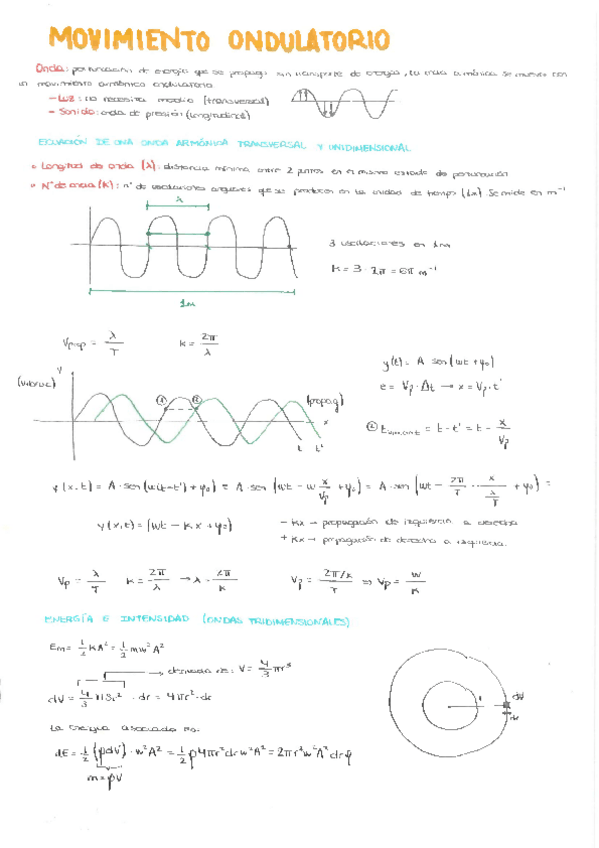 MOVIMIENTO ONDULATORIO
Onda: perturbación de energía que se propaga sin transporte de energía, la onda armónica se mueve con
un movimiento armónico ondulatorio
- Luz: no necesita medio (transversal)
- Sonido: onda de presión (longitudinal)
ECUACIÓN DE UNA ONDA ARMÓNICA TRANSVERSAL Y UNIDIMENSIONAL
Longitud de onda (λ): distancia mínima entre 2 puntos en el mismo estado de perturbación
Nº de onda (K): nº de oscilaciones angulares que se producen en la unidad de tiempo (1m). Se mide en m⁻¹
λ
3 oscilaciones en 1m
K = 3 · 2π = 6π m⁻¹
1m
Vprop = λ/T    K = 2π/λ
y(t) = A sen (wt + φ₀)
(vibrac) y
① ②
(propag)
x
t t'
e = Vp · Δt → x = Vp · t'
② t = t - t' = t - x/Vp
y(x,t) = A · sen (w(t-t') + φ₀) = A · sen (wt - w x/Vp + φ₀) = A · sen (wt - 2π/T · x/(λ/T) + φ₀) =
y(x,t) = (wt - Kx + φ₀)
- Kx → propagación de izquierda a derecha
+ Kx → propagación de derecha a izquierda
Vp = λ/T    K = 2π/λ → λ = 2π/K    Vp = (2π/K)/T ⇒ Vp = w/K
ENERGÍA E INTENSIDAD (ONDAS TRIDIMENSIONALES)
Em = 1/2 KA² = 1/2 mw²A²
→ derivada de: V = 4/3 πr³
dV = 4/3 π3r² · dr = 4πr² · dr
r
dV
dr
La energía asociada
dE = 1/2 (ρdV) · w²A² = 1/2 ρ4πr²drw²A² = 2π²r²w²A²drρ
m = ρV